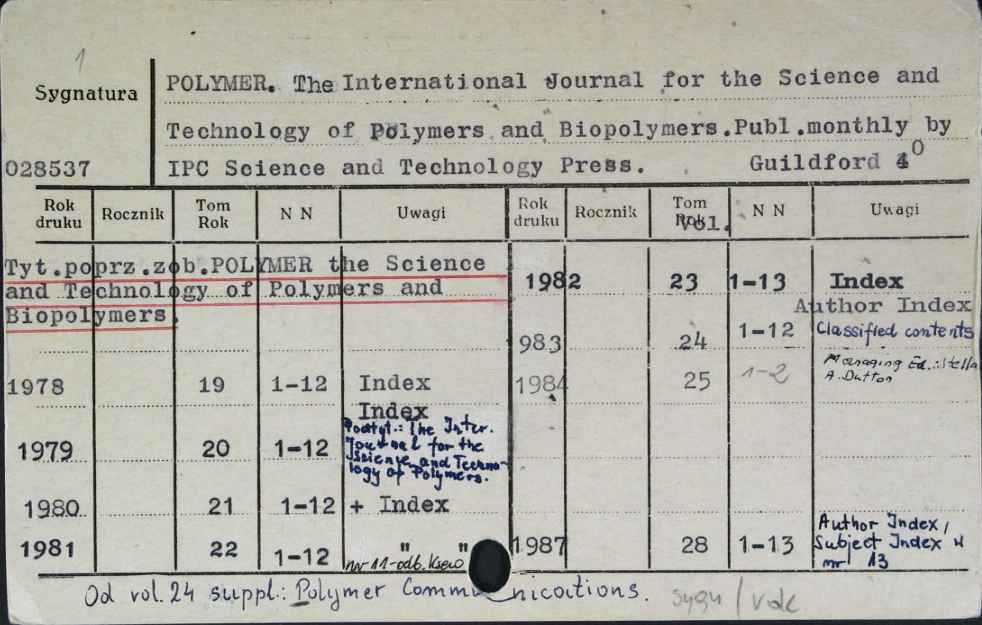 1
Sygnatura
POLYMER. The International Journal for the Science and
Technology of Polymers and Biopolymers.Publ.monthly by
028537
IPC Science and Technology Press. Guildford 4⁰
Rok druku Rocznik Tom Rok N N Uwagi Rok druku Rocznik Tom Rok Vol. N N Uwagi
Tyt.poprz.zob.POLYMER the Science
and Technology of Polymers and
Biopolymers
1978 19 1-12 Index
1979 20 1-12 Index
Podtyt.: The Inter.
Journal for the
Science and Techno-
logy of Polymers.
1980 21 1-12 + Index
1981 22 1-12 " "
nr 11-odb. ksero
1982 23 1-13 Index
Author Index
983 24 1-12 Classified contents
1984 25 1-2 Managing Ed.: Stella
A. Dutton
1987 28 1-13 Author Index,
Subject Index w
nr 13
Od vol. 24 suppl.: Polymer Communications.
sygn / vde